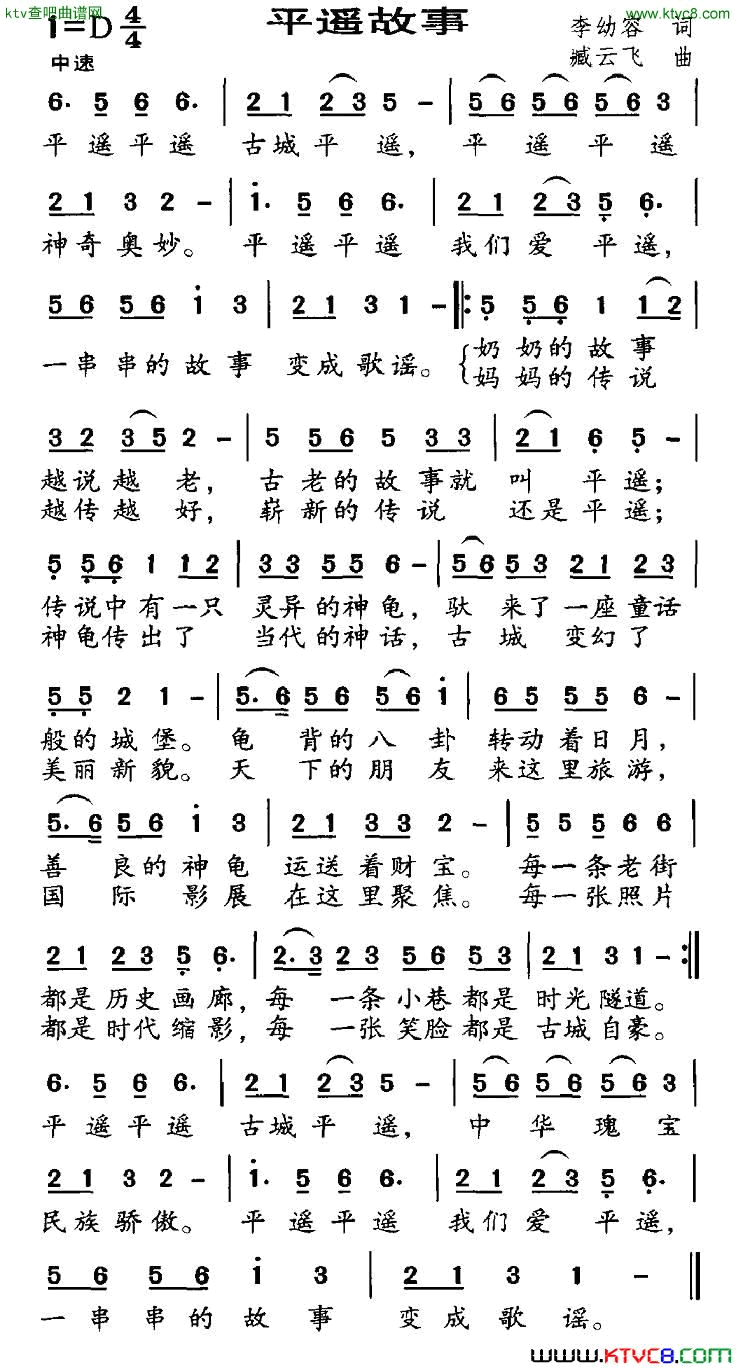 ktv查吧曲谱网
www.ktvc8.com
1=D 4/4 平遥故事 李幼容 词
中速 臧云飞 曲
6. 5 6 6. | 2 1 2 3 5 - | 5 6 5 6 5 6 3
平 遥 平 遥 古城平 遥, 平 遥 平 遥
2 1 3 2 - | i. 5 6 6. | 2 1 2 3 5 6. |
神奇奥妙。 平 遥平遥 我们爱 平遥,
5 6 5 6 i 3 | 2 1 3 1 - ‖: 5 5 6 1 1 2 |
一串串的故事 变成歌谣。 { 奶 奶的 故事
妈 妈的 传说
3 2 3 5 2 - | 5 5 6 5 3 3 | 2 1 6 5 - |
越说越 老, 古 老的 故 事就 叫 平 遥;
越传越 好, 崭 新的 传 说 还是 平 遥;
5 5 6 1 1 2 | 3 3 5 5 6 - | 5 6 5 3 2 1 2 3 |
传说中有一只 灵异的神龟, 驮 来了一座童话
神龟传出了 当代的神话, 古 城 变幻了
5 5 2 1 - | 5. 6 5 6 5 6 i | 6 5 5 5 6 - |
般的城堡。 龟 背的八 卦 转动着日月,
美丽新貌。 天 下的朋 友 来这里旅游,
5. 6 5 6 i 3 | 2 1 3 3 2 - | 5 5 5 6 6 |
善 良的神龟 运送着财宝。 每一条老街
国 际 影展 在这里聚焦。 每一张照片
2 1 2 3 5 6. | 2. 3 2 3 5 6 5 3 | 2 1 3 1 - :‖
都是历史画廊, 每 一条小巷都是 时光隧道。
都是时代缩影, 每 一张笑脸都是 古城自豪。
6. 5 6 6. | 2 1 2 3 5 - | 5 6 5 6 5 6 3 |
平 遥平遥 古城平 遥, 中 华 瑰 宝
2 1 3 2 - | i. 5 6 6. | 2 1 2 3 5 6. |
民族骄傲。 平 遥平遥 我们爱 平遥,
5 6 5 6 i 3 | 2 1 3 1 - ‖
一串 串的 故 事 变成 歌 谣。
www.KTVC8.COM